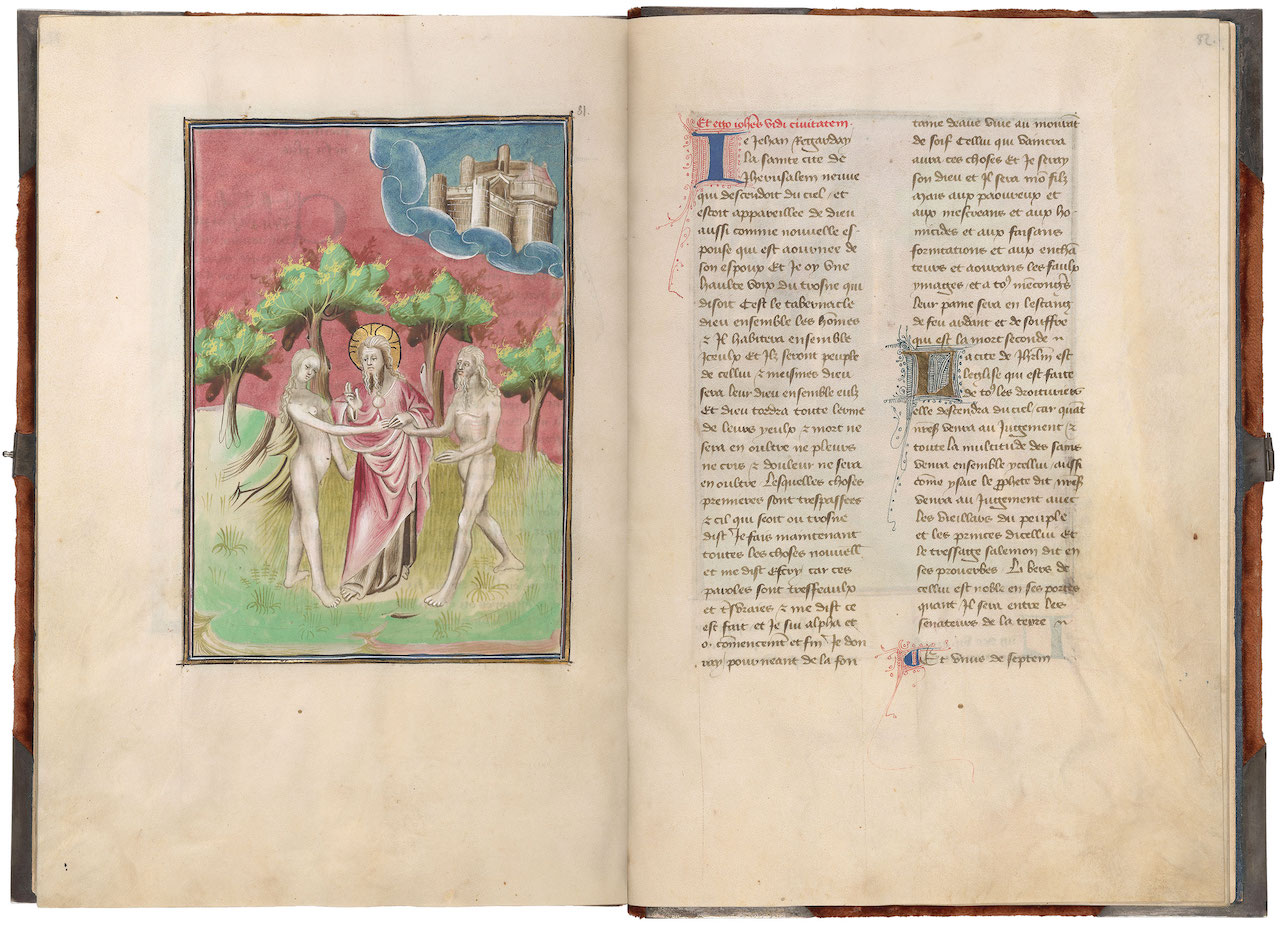 81.
82.
Et ego iohēs vidi civitatem.
Ie Jehan Regarday
la sainte cite de
Jherusalem neuve
qui descendoit du ciel / et
estoit appareillee de dieu
aussi comme nouvelle es-
pouse qui est aournee de
son espoux Et Je oy vne
haulte voix du trosne qui
disoit C'est le tabernacle
dieu ensemble les hōmes
⁊ Il habitera ensemble
iceulx Et Ilz seront peuple
de cellui / ⁊ meismes dieu
sera leur dieu ensemble eulz
Et dieu tordra toute lerme
de leurs yeulx ⁊ mort ne
sera en oultre ne pleurs
ne cris ⁊ douleur ne sera
en oultre Lesquelles choses
premieres sont trespassees
⁊ cil qui seoit ou trosne
dist Je fais maintenant
toutes les choses nouvell
et me dist Escry car ces
paroles sont tresseaulx
et vraies ⁊ me dist ce
est fait / et Je sui alpha et
o. cōmencemēt et fin Je don
ray pourneant de la fon
taine deaue viue au mourāt
de soif Cellui qui vaincra
aura ces choses Et Je seray
son dieu et Il sera mō filz
Mais aux paoureux et
aux mescreans et aux ho-
micides et aux faisans
fornications et aux enchā
teurs et aourans les faulx
ymages / et a to⁹ mēcong̃s
leur paine sera en lestang
de feu ardant et de souffre
qui est la mort seconde
La cite de Jhrlm̄ est
leglise qui est faite
de to⁹ les droituriers
elle descendra du ciel / car quāt
venra au Jugement ⁊
toute la multitude des sains
venra ensemble ycellui / aussi
cōme ysaie le p̄phete dit
venra au Jugement avec
les vieillars du peuple
et les princes dicellui Et
le tressage salemon dit en
ses proverbes Li bers de
cellui est noble en ses portes
quant Il sera entre les
senateurs de la terre
Et vnus de septem